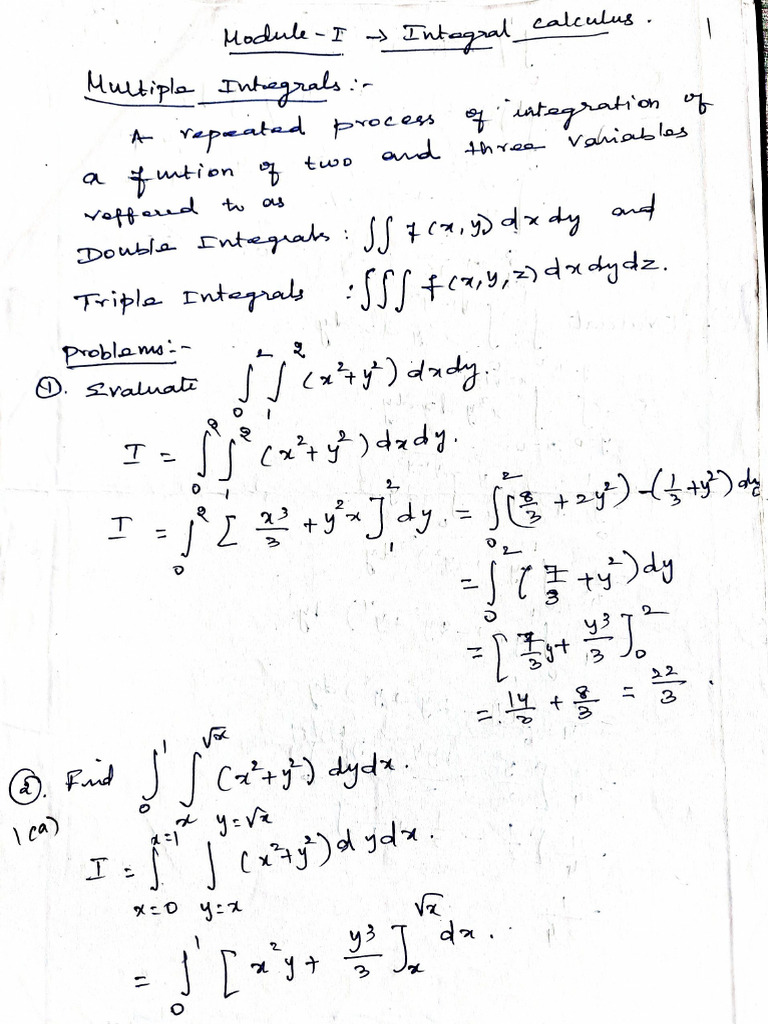 Module-I → Integral calculus. 1
Multiple Integrals:-
A repeated process of integration of
a funtion of two and three variables
reffered to as
Double Integrals : ∬ f(x,y) dx dy and
Triple Integrals : ∭ f(x,y,z) dx dy dz.
Problems:-
①. Evaluate ∫₀² ∫₁² (x²+y²) dx dy.
I = ∫₀² ∫₁² (x²+y²) dx dy.
I = ∫₀² [x³/3 + y²x]₁² dy = ∫₀² (8/3 + 2y²) - (1/3 + y²) dy
= ∫₀² (7/3 + y²) dy
= [7/3 y + y³/3]₀²
= 14/3 + 8/3 = 22/3.
②. Find ∫₀¹ ∫ₓ^√x (x²+y²) dy dx.
1(a)
I = ∫_{x=0}^{x=1} ∫_{y=x}^{y=√x} (x²+y²) dy dx.
= ∫₀¹ [x²y + y³/3]ₓ^√x dx.